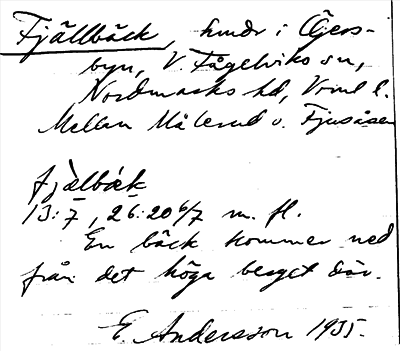 Fjällbäck, hmdr i Ögers-
byn, V. Fågelviks sn,
Nordmarks hd, Vrml l.
Mellan Målerud o. Fjusåsen
fjä̀lbæk
13:7, 26:20 6/7 m. fl.
En bäck kommer ned
från det höga berget där.
E. Andersson 1935.